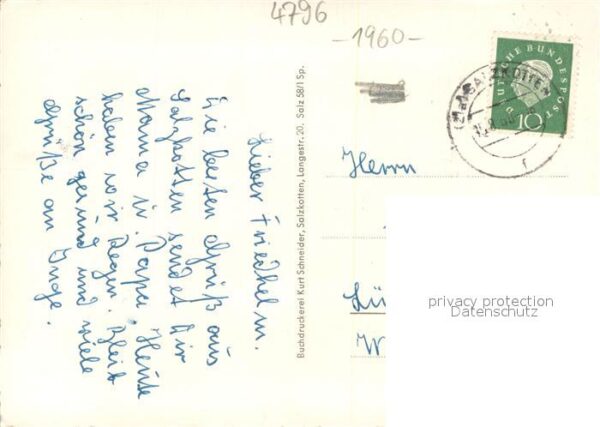 4796
-1960-
DEUTSCHE BUNDESPOST
10
SALZKOTTEN
Lieber Friedhelm.
Die besten Grüß aus
Salzkotten sendet Dir
Mama u. Papa. Heute
haben wir Regen. Bleib
schön gesund und viele
Grüße an Inge.
Buchdruckerei Kurt Schneider, Salzkotten, Langestr. 20. Salz 58/1 Sp.
Herrn
Lü
W
privacy protection
Datenschutz